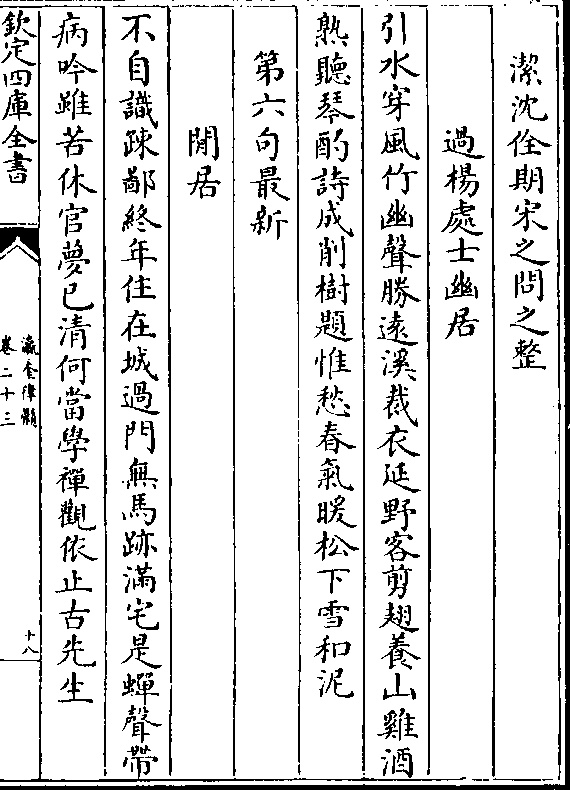 潔沈佺期宋之問之整
過楊處士幽居
引水穿風竹幽聲勝遠溪裁衣延野客剪翅養山雞酒
熟聽琴酌詩成削樹題惟愁春氣暖松下雪和泥
第六句最新
閒居
不自識疎鄙終年住在城過門無馬跡滿宅是蟬聲帶
病吟雖苦休官夢已清何當學禪觀依止古先生
欽定四庫全書
瀛奎律髓
卷二十三
十八